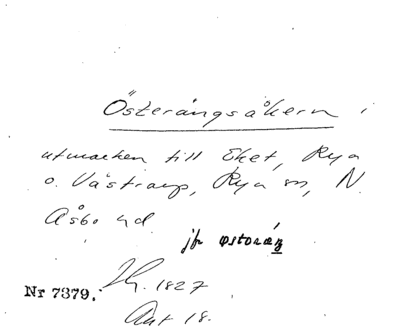 Österångsåkern i
utmarken till Eket, Rya
o. Västrarp, Rya sn, N.
Åsbo hd
jfr østoráŋ
Nr 7379. Th. 1827
Ant 18.